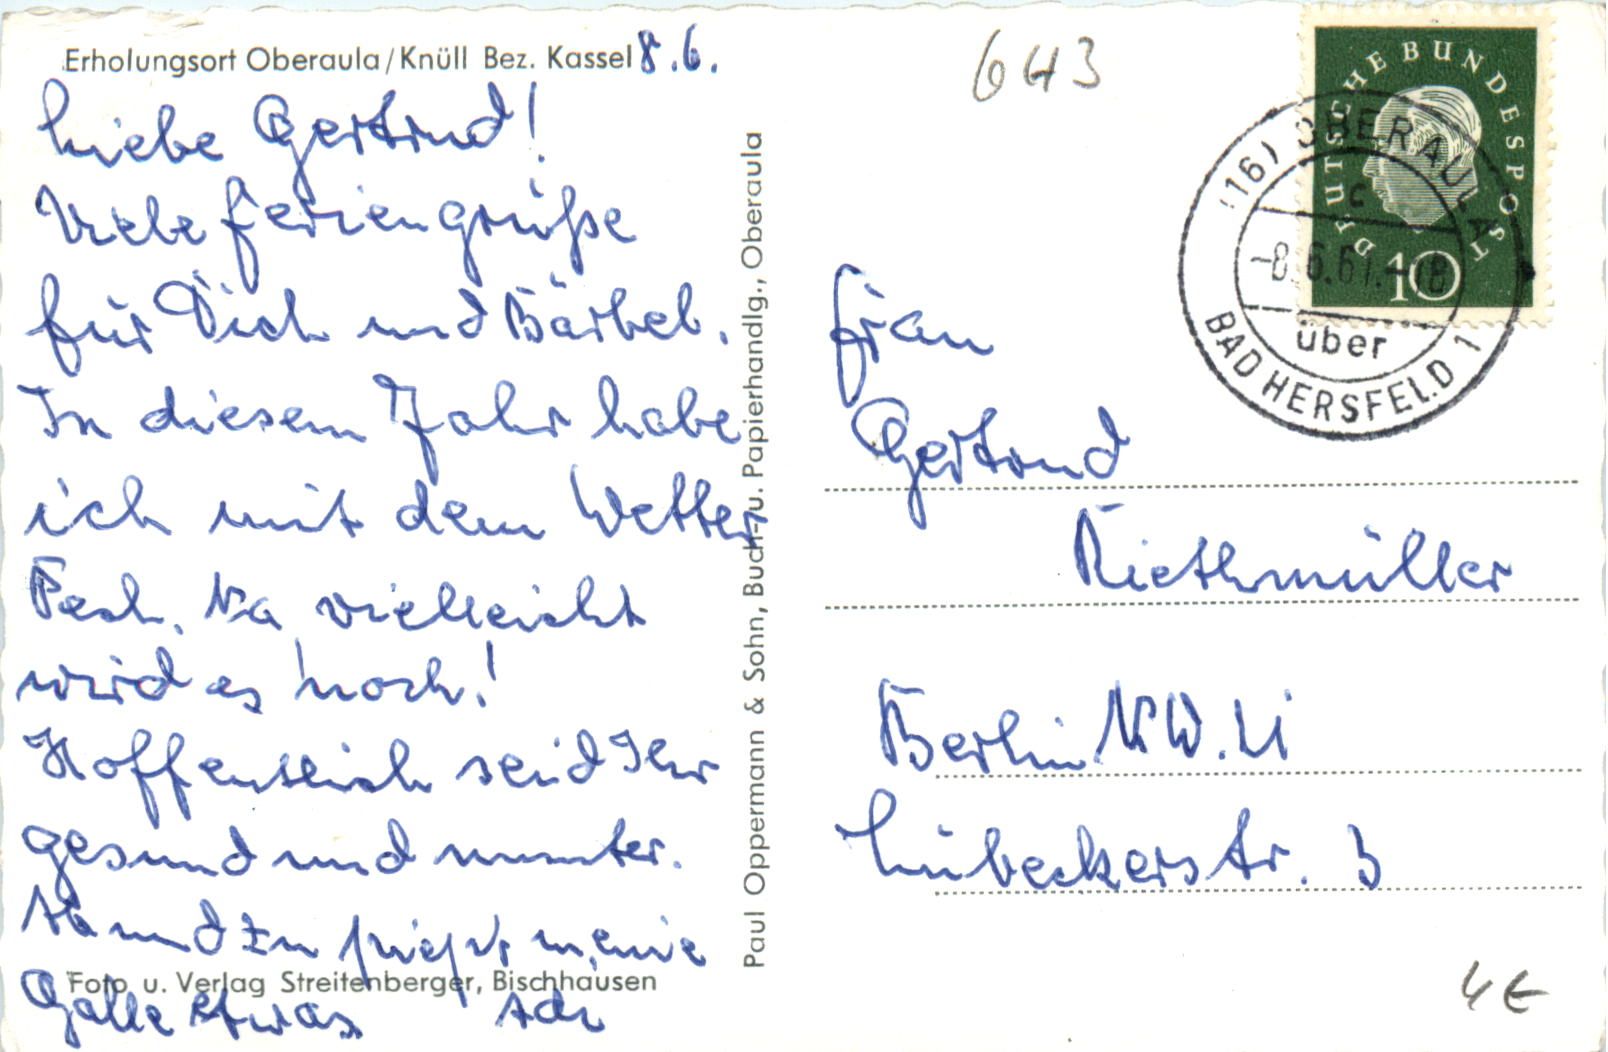 Erholungsort Oberaula/Knüll Bez. Kassel 8.6.
Liebe Gertrud!
Viele Feriengrüße
für Dich und Bärbel.
In diesem Jahr habe
ich mit dem Wetter
Pech. Na vielleicht
wird es noch!
Hoffentlich seid Ihr
gesund und munter.
Ab und zu meine
Galle etwas
Foto u. Verlag Streitenberger, Bischhausen
Paul Oppermann & Sohn, Buch- u. Papierhandlg., Oberaula
643
DEUTSCHE BUNDESPOST
10
(16) OBERAULA
c
-8.6.61.-18
über
BAD HERSFELD 1
Frau
Gertrud
Riethmüller
Berlin NW.21
Lübeckerstr. 3
4€